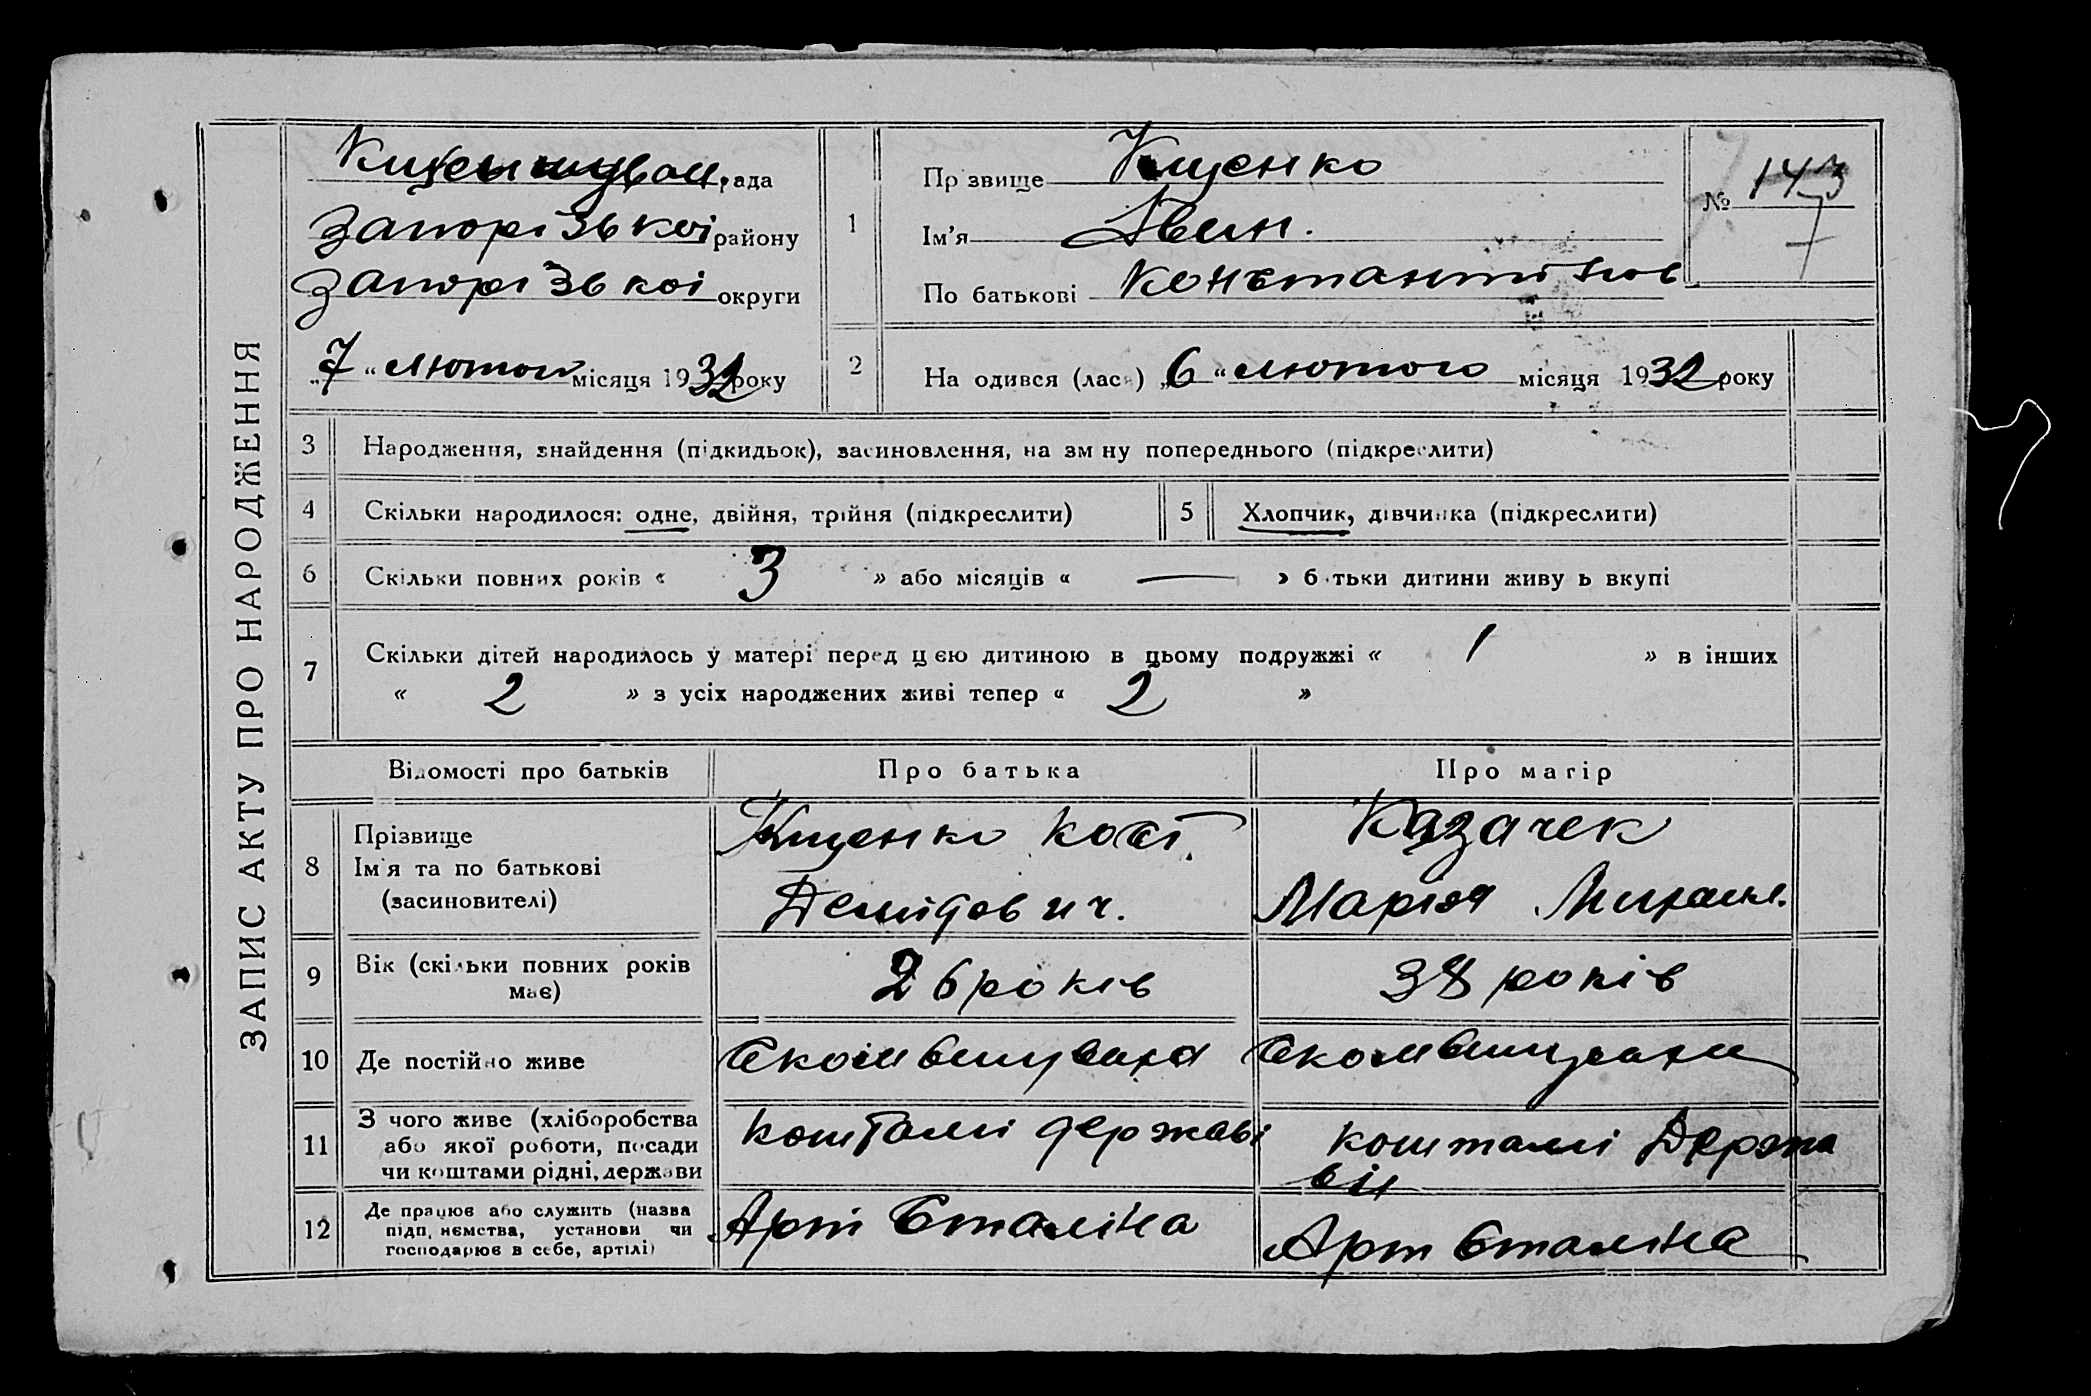 ЗАПИС АКТУ ПРО НАРОДЖЕННЯ
рада
Запорізькоі району
Запорізькоі округи
„7“ лютого місяця 1932 року
1
Прізвище Кищенко
Ім'я Іван.
По батькові Константінов
№ 143
7
2
Народився (лася) „6“ лютого місяця 1932 року
3 Народження, знайдення (підкидьок), засиновлення, на зміну попереднього (підкреслити)
4 Скільки народилося: одне, двійня, трійня (підкреслити)
5 Хлопчик, дівчинка (підкреслити)
6 Скільки повних років « 3 » або місяців « — » батьки дитини живуть вкупі
7 Скільки дітей народилось у матері перед цією дитиною в цьому подружжі « 1 » в інших
« 2 » з усіх народжених живі тепер « 2 »
Відомості про батьків
Про батька
Про матір
8 Прізвище
Ім'я та по батькові
(засиновителі)
Кищенко Кост.
Демідович.
Казачек
Мария Михаил.
9 Вік (скільки повних років
має)
26 років
38 років
10 Де постійно живе
11 З чого живе (хліборобства
або якої роботи, посади
чи коштами рідні, держави
коштамі державі
коштамі Держа
він
12 Де працює або служить (назва
підприємства, установи чи
господарює в себе, артілі)
Арт Сталіна
Арт Сталіна